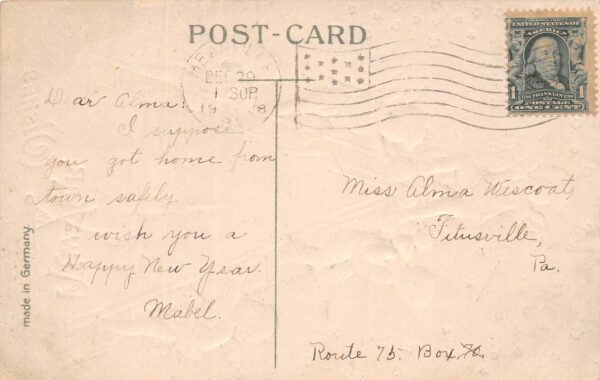 POST-CARD
DEC 29
1 30P
19 8
PA.
SERIES 1902
UNITED STATES OF
AMERICA
FRANKLIN
1 POSTAGE 1
ONE CENT
Dear Alma:
I suppose
you got home from
town safely
I wish you a
Happy New Year.
Mabel.
Miss Alma Wescoat,
Titusville,
Pa.
Route 75. Box
made in Germany.